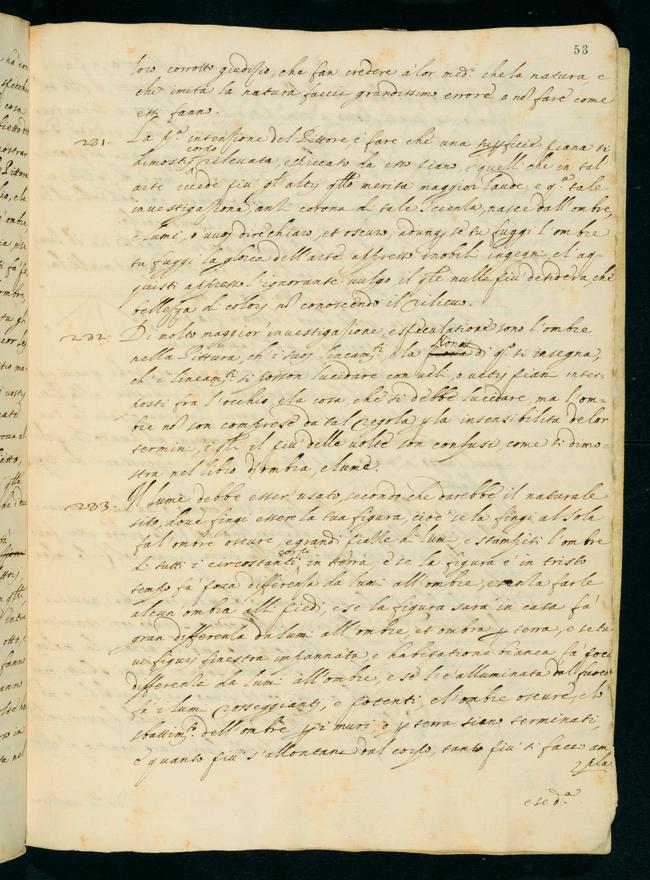 53
loro corrotto giuditio, che fan credere à lor med.i che la natura e
che imita la natura faccia grandissimo errore a nõ fare come
essi fanno.
231. La p.a intensione del Pittore è fare che una superficie piana si
dimostri corpo rilevato, e spiccato da esso piano, e quell che in tal
arte eccede più gl'altri q.llo merita maggior laude, e q.a tale
investigazione, anzi corona di tale scienza, nasce dall'ombre,
e lumi, o vuoi dire chiaro, et oscuro, adunq; se tu fuggi l'ombre
tu fuggi la gloria dell'arte appresso i nobili ingegni, e l'ac-
quisti appresso l'ignorante vulgo, il q.le nulla più desidera che
bellezza di colori nõ conoscendo il rilievo.
232. Di molto maggior investigazione, e speculatione sono l'ombre
nella Pittura, ch'i suoi lineam.ti, e la prova di q.o s'insegna,
ch'i lineam.ti si posson lucidare con veli, o vetri piani inter-
posti fra l'occhio, e la cosa, che si debbe lucidare, ma l'om-
bre nõ son comprese da tal regola p la insensibilità de lor
termini, i q.li il più delle volte son confusi come si dimo-
stra nel libro d'ombra, e lume.
233. Il lume debbe esser usato, secondo che darebbe il naturale
sito, dove fingi essere la tua figura, cioè se la fingi al sole
fa l'ombre oscure, e grandi piazze di lumi, e stampisci l'ombre
di tutti i circostanti corpi in terra, e se la figura è in tristo
tempo fà poca differenza da lumi all'ombre, e senza farle
alcun ombra alli piedi, e se la figura sarà in casa fà
gran differenza da lumi all'ombre, et ombra p terra, e se tu
vi figuri finestra impannata, e habitatione bianca, fà poca
differenza da lumi all'ombre, e se l'è alluminata dal fuoco
fà i lumi rosseggianti, e potenti, e l'ombre oscure, e lo
sbattim.o dell'ombre p i muri, o p terra siano terminati,
e quanto più s'allontana dal corpo, tanto più si facci am
pla
e se d.a